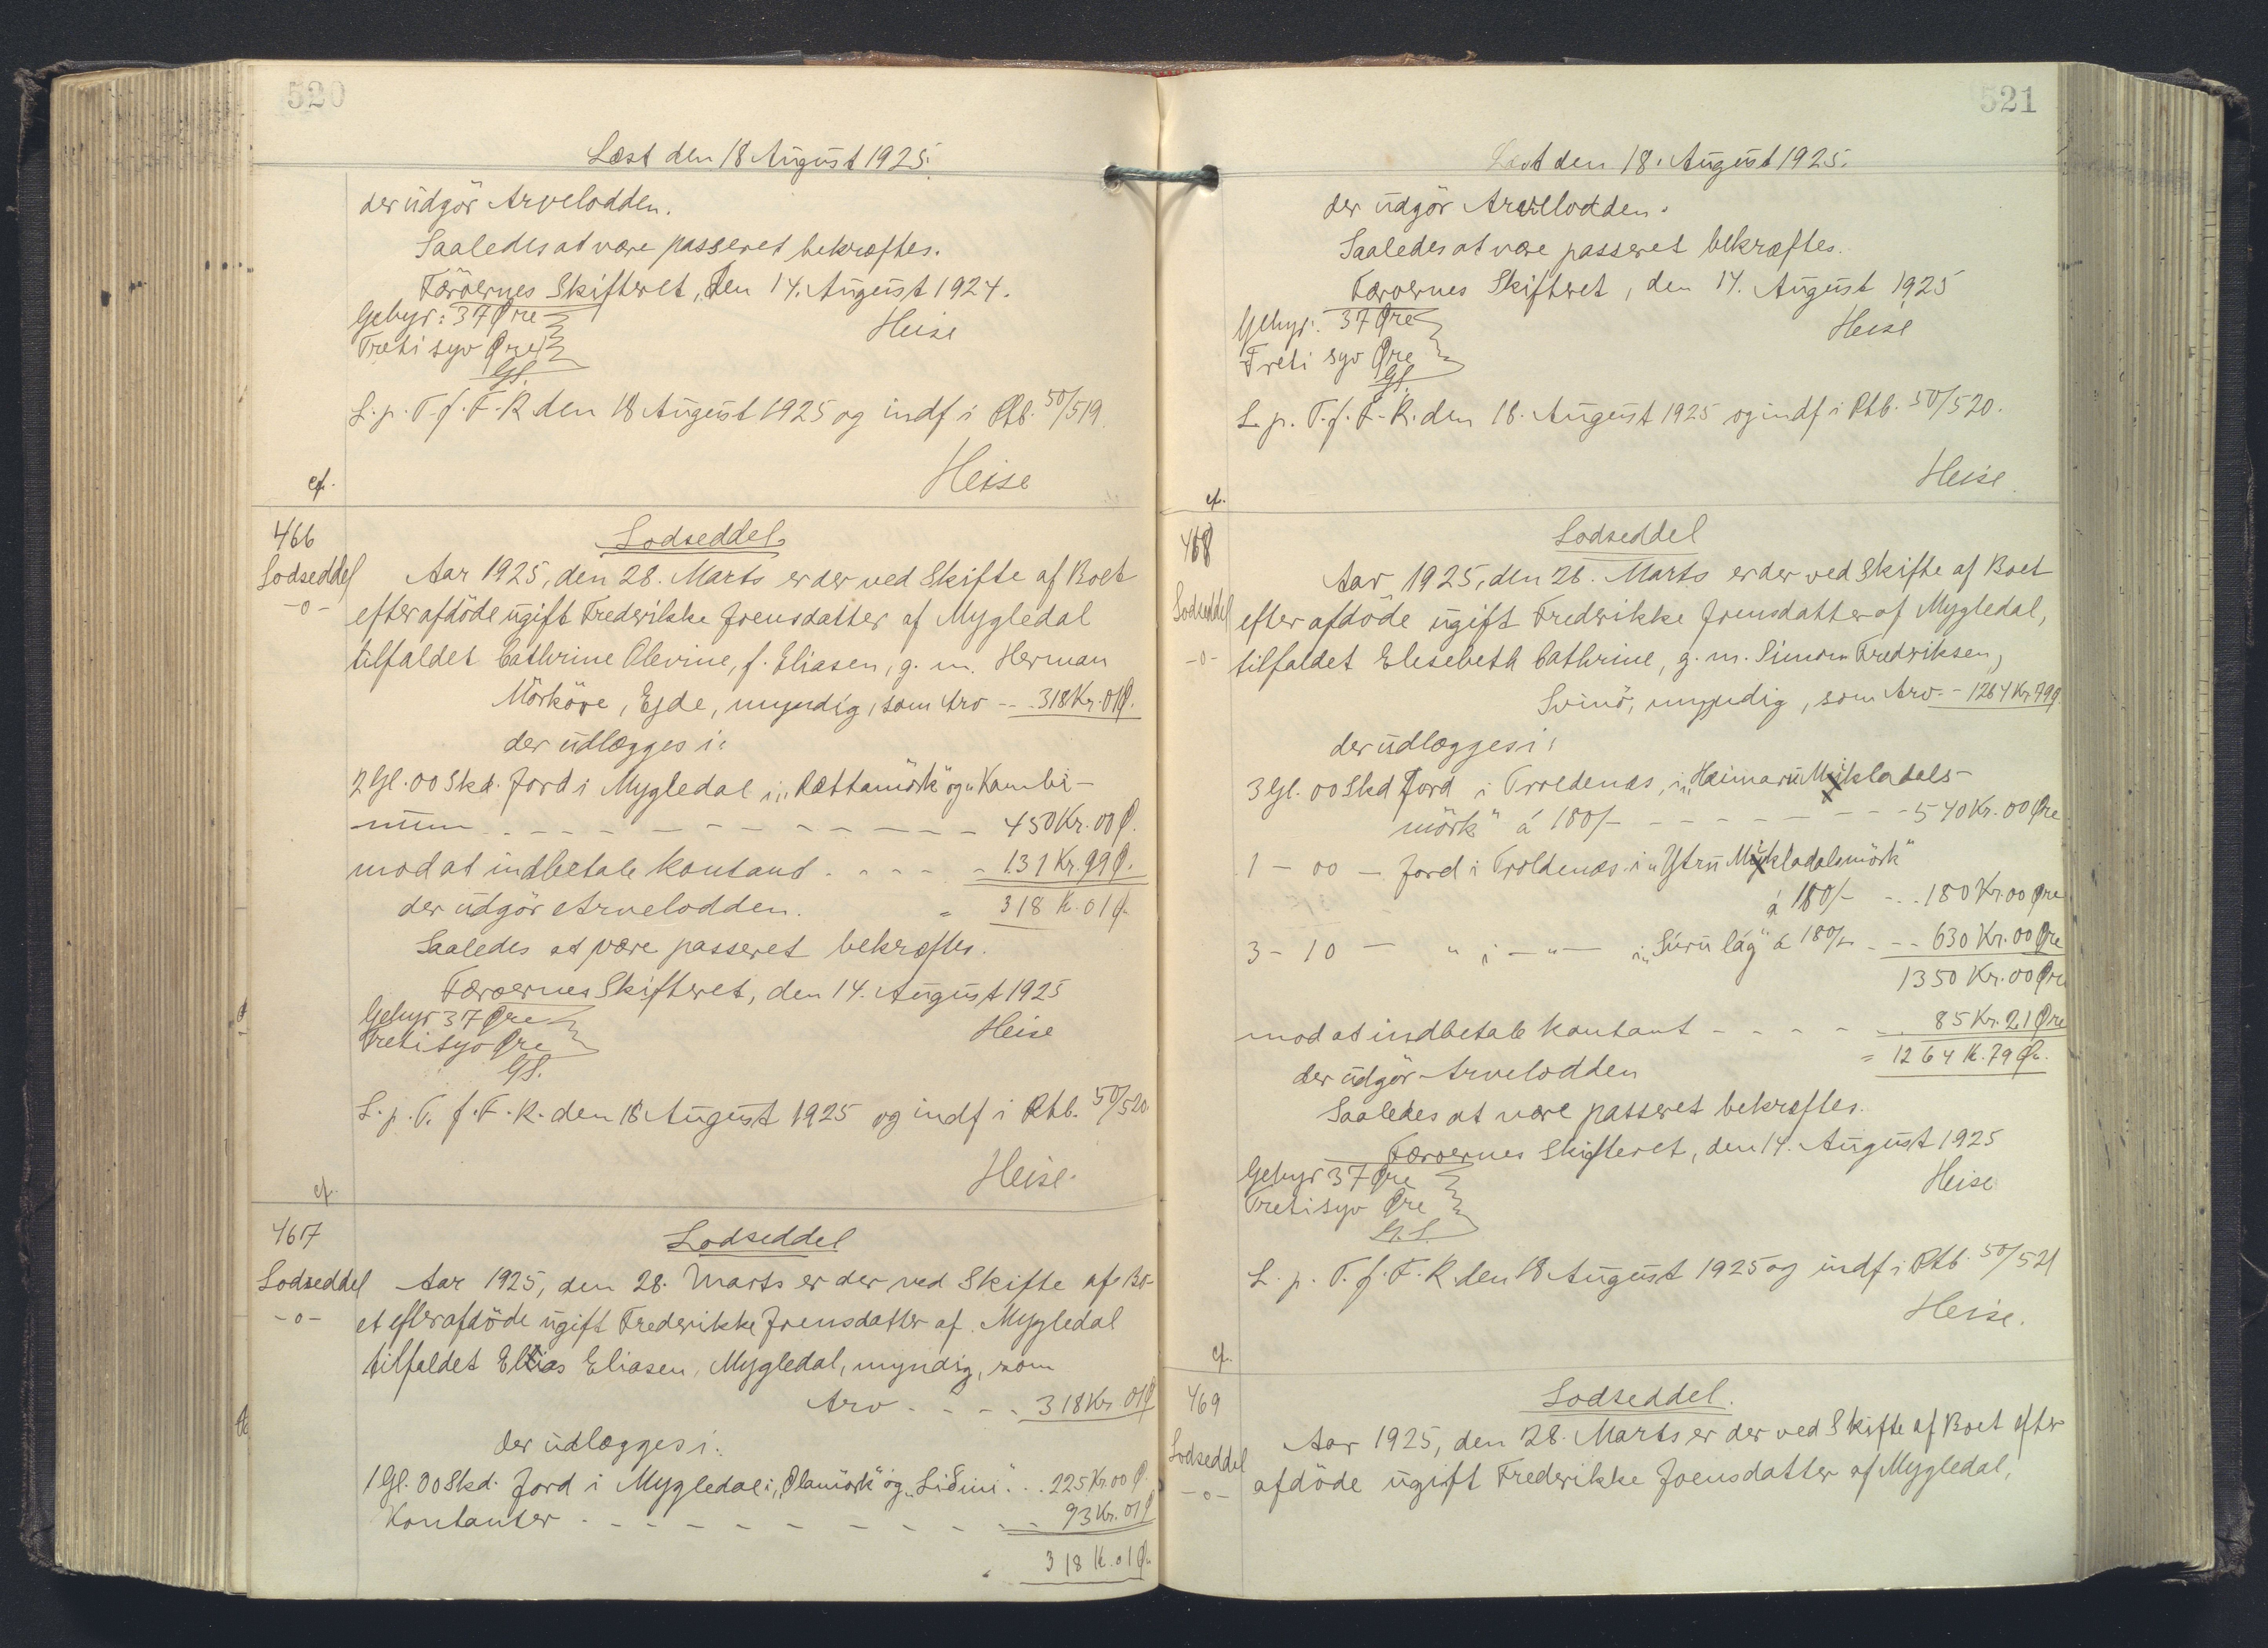 520
Læst den 18 August 1925.
der udgör Arvelodden.
Saaledes at være passeret bekræftes.
Færöernes Skifteret, den 14. August 1924.
Gebyr: 37 Øre
Heise
Treti syv Øre
GS.
L. p. T. f. F. R. den 18 August 1925 og indf i Rtb. 50/519.
Heise
cf.
466
Lodseddel
Lodseddel
-o-
Aar 1925, den 28. Marts er der ved Skifte af Boet
efter afdöde ugift Frederikke Joensdatter af Mygledal
tilfaldet Cathrine Olevine, f. Eliasen, g. m. Herman
Mörköre, Ejde, myndig, som Arv - - . 318 Kr. 01 Ø.
der udlægges i:
2 Gl. 00 Skd. Jord i Mygledal i „Rættamörk" og „Kambi-
num - - - - - - - - - - 450 Kr. 00 Ø.
mod at indbetale kontant - - - - 131 Kr. 99 Ø.
der udgör Arvelodden. = 318 K. 01 Ø.
Saaledes at være passeret bekræftes.
Færøernes Skifteret, den 14. August 1925
Gebyr 37 Øre
Heise
Tretisyv Øre
GS.
L. p. T. f. F. R. den 18 August 1925 og indf i Rtb. 50/520.
Heise.
cf.
467
Lodseddel
Lodseddel
-o-
Aar 1925, den 28. Marts er der ved Skifte af Bo-
et efter afdöde ugift Frederikke Joensdatter af Mygledal
tilfaldet Elias Eliasen, Mygledal, myndig, som
Arv - - - - 318 Kr. 01 Ø
der udlægges i:
1 Gl. 00 Skd. Jord i Mygledal i „Olamörk" og „Liðini" . . . 225 Kr. 00 Ø.
Kontanter - - - - - - - - - - 93 Kr. 01 Ø
318 K. 01 Ø.
521
Læst den 18. August 1925.
der udgör Arvelodden.
Saaledes at være passeret bekræftes.
Færøernes Skifteret, den 14. August 1925
Gebyr: 37 Øre
Heise
Treti syv Øre
GS.
L. p. T. f. F. R. den 18. August 1925 og indf i Rtb. 50/520.
Heise
cf.
468
Lodseddel
Lodseddel
-o-
Aar 1925, den 28. Marts er der ved Skifte af Boet
efter afdöde ugift Fredrikke Joensdatter af Mygledal,
tilfaldet Elisebeth Cathrine, g. m. Simon Fredriksen,
Svinö, myndig, som Arv. - 1264 Kr 79 Ø.
der udlægges i:
3 Gl. 00 Skd Jord i Troldenæs, i „Heimaru Mikladals-
mörk" á 180/- - - - - - - - 540 Kr. 00 Øre
1 - 00 - Jord i Troldenæs i „Ytru Mikladalsmörk"
á 180/- - . . 180 Kr. 00 Øre
3 - 10 - " i - " - i „Súru lág" á 180/- - - - 630 Kr. 00 Øre
1350 Kr. 00 Øre
mod at indbetale kontant - - - - - 85 Kr. 21 Øre
der udgör Arvelodden = 1264 K. 79 Ø.
Saaledes at være passeret bekræftes.
Færøernes Skifteret, den 14. August 1925
Gebyr 37 Øre
Heise
Tretisyv Øre
G.S.
L. p. T. f. F. R. den 18 August 1925 og indf i Rtb. 50/521
Heise.
cf.
469
Lodseddel.
Lodseddel
-o-
Aar 1925, den 28. Marts er der ved Skifte af Boet efter
afdöde ugift Frederikke Joensdatter af Mygledal,